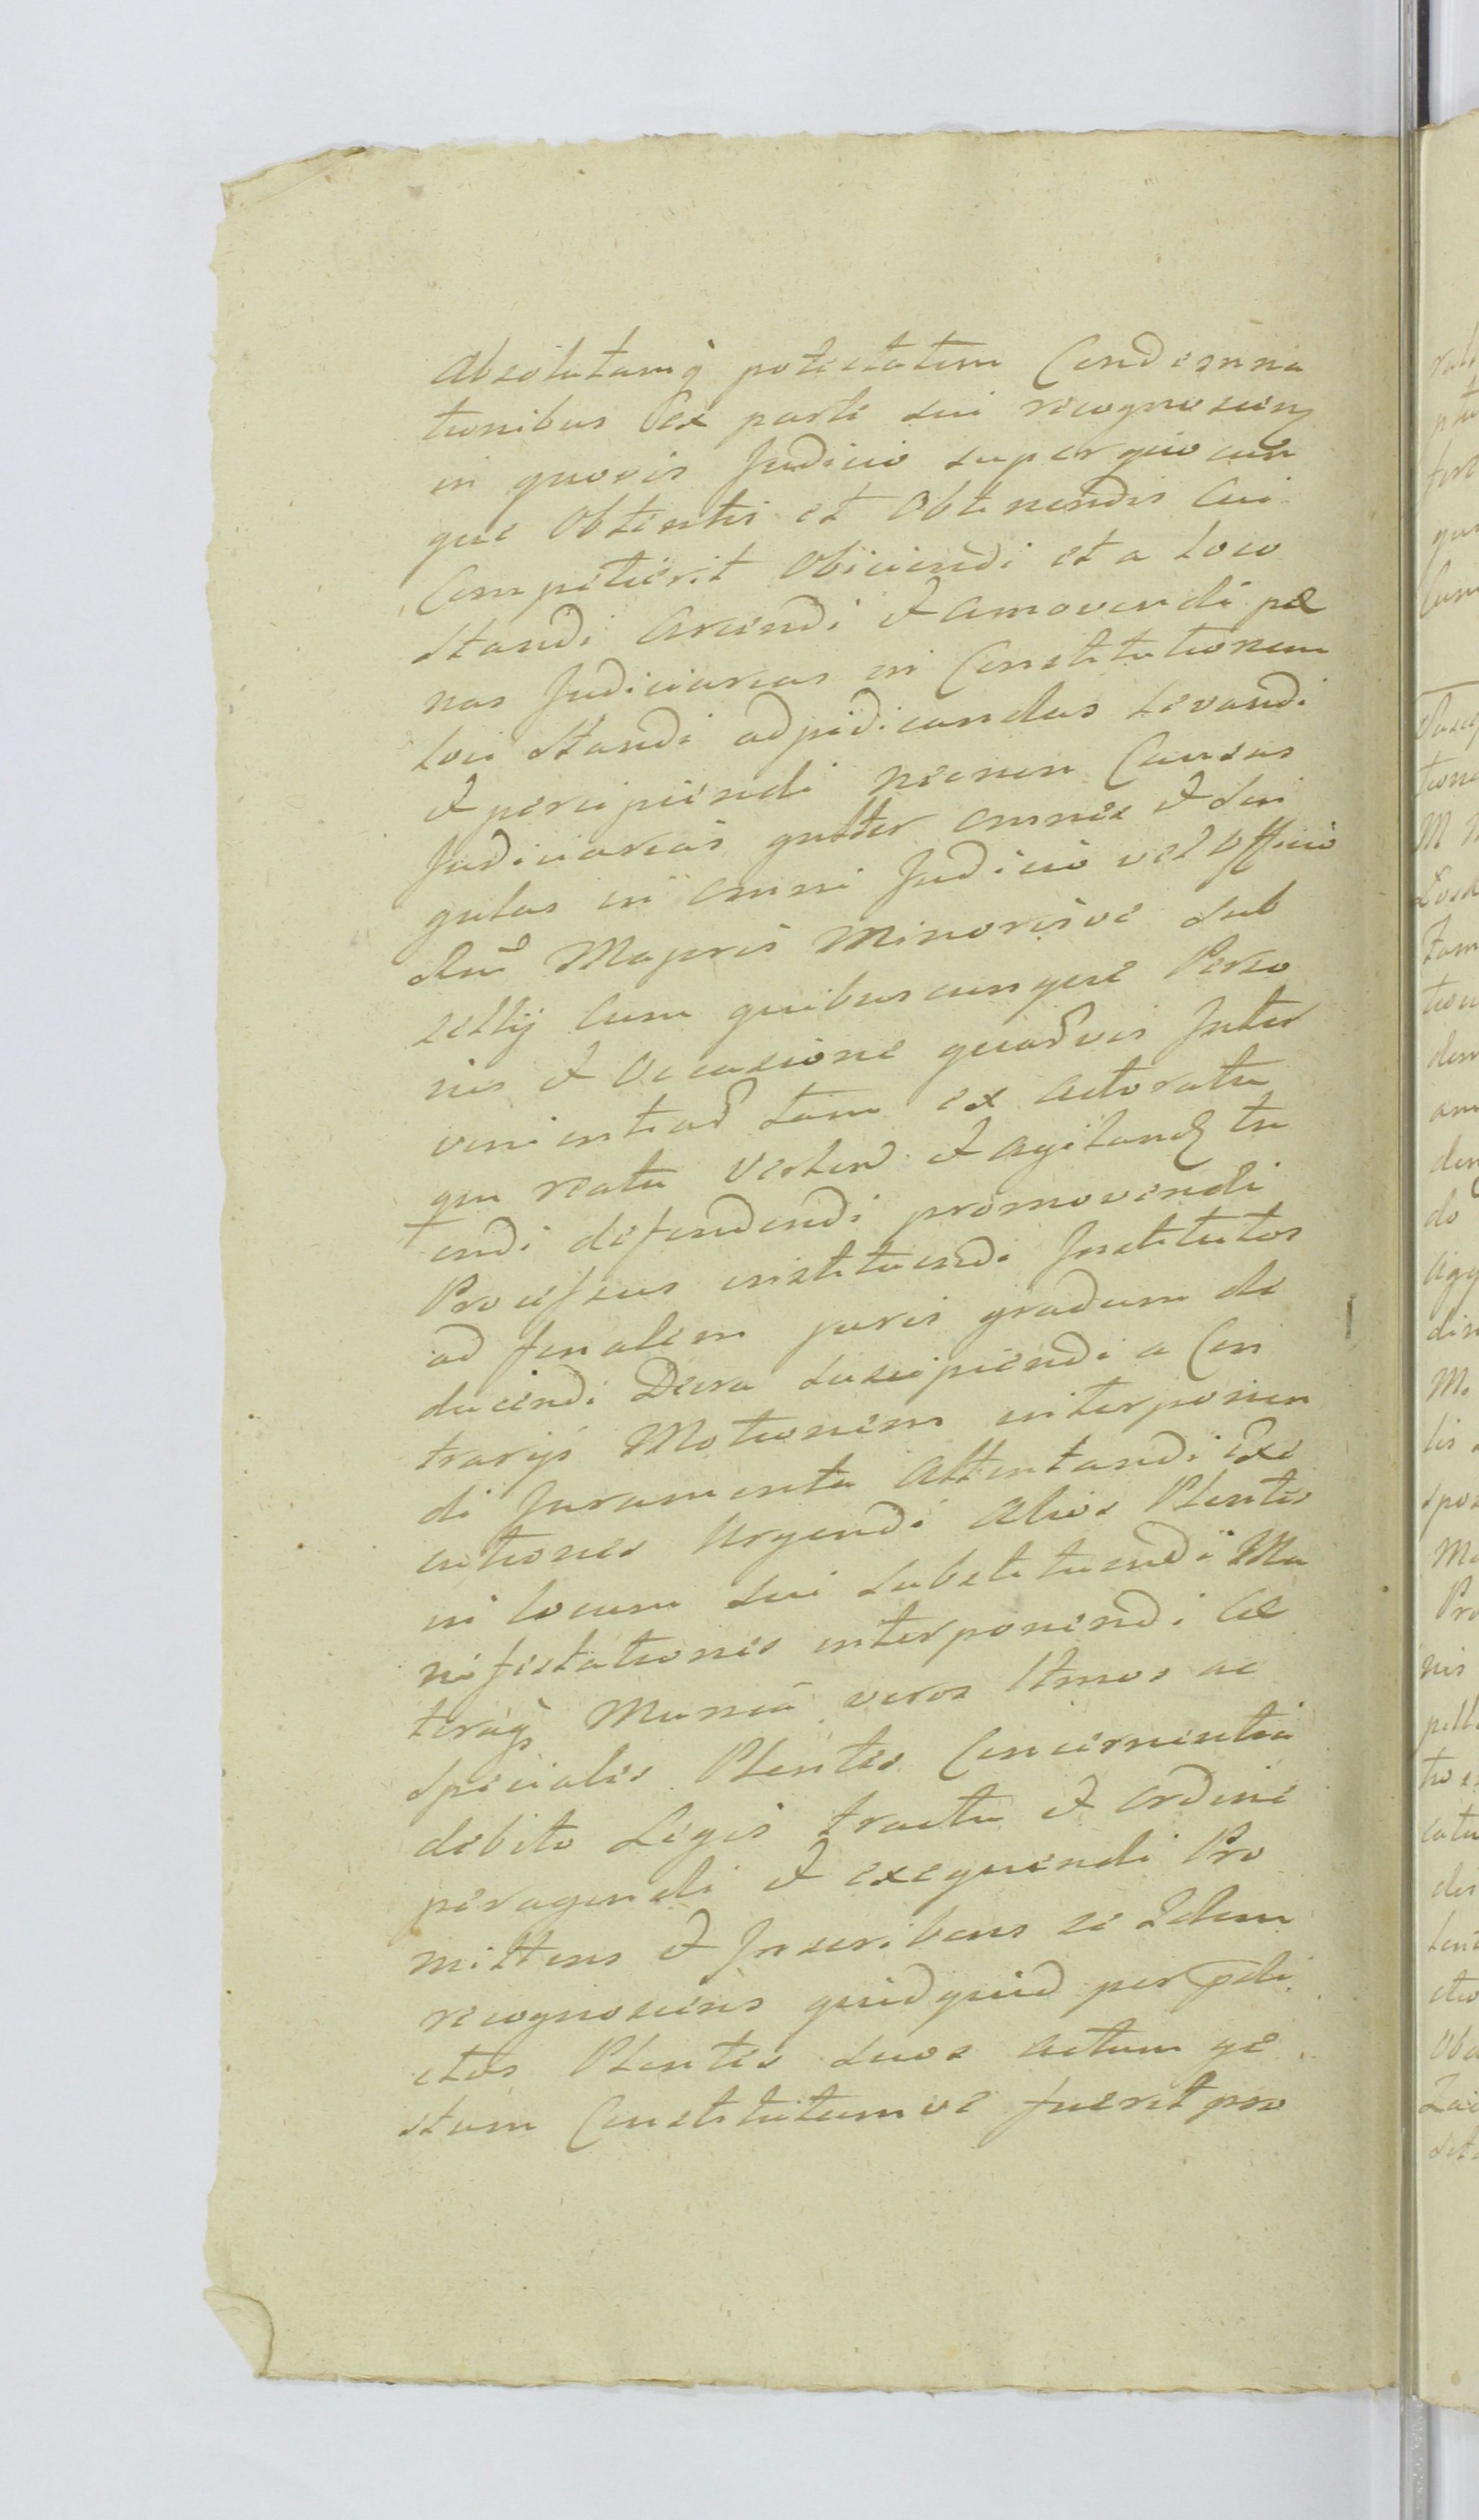 Absolutamq potestatem Condemna
tionibus Oex parte sui recognoscen
in quovis Judicio super quocun
que Obtentis et Obtinendis Cui
Competierit Obiiciendi et a Loco
Standi Arcendi et amovendi pæ
nas Judiciarias in Constitutionem
loci Standi adjudicandas Levandi
et percipiendi necnon Causas
Judiciarias gnlter omnes et sin
gulas in omni Judicio vel Officio
Rni Majoris Minorisve Sub
sellij Cum quibuscunque Perso
nis et Occasione quarvis Inter
venientiar tam ex actoratu
qm reatu Verten et agitand tu
endi defendendi promovendi
Processus instituendi Institutos
ad finalem juris gradum de
ducendi Decra suscipiendi a Con
trarijs Motionem interponen
di Juramenta Attentandi Exe
cutiones Urgendi Alios Plentes
in locum sui substituendi Ma
nifestationes interponendi Cæ
teraq Munia veros Ltmos ac
Speciales Plentes Concernentia
debito Legis tractu et ordine
peragendi et exequendi Pro
mittens et Inscribens se Idem
recognoscens quidquid per pdi
ctos Plentes suos actum ge
stum Constitutumve fuerit pro